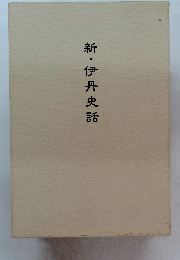 新・伊丹史話